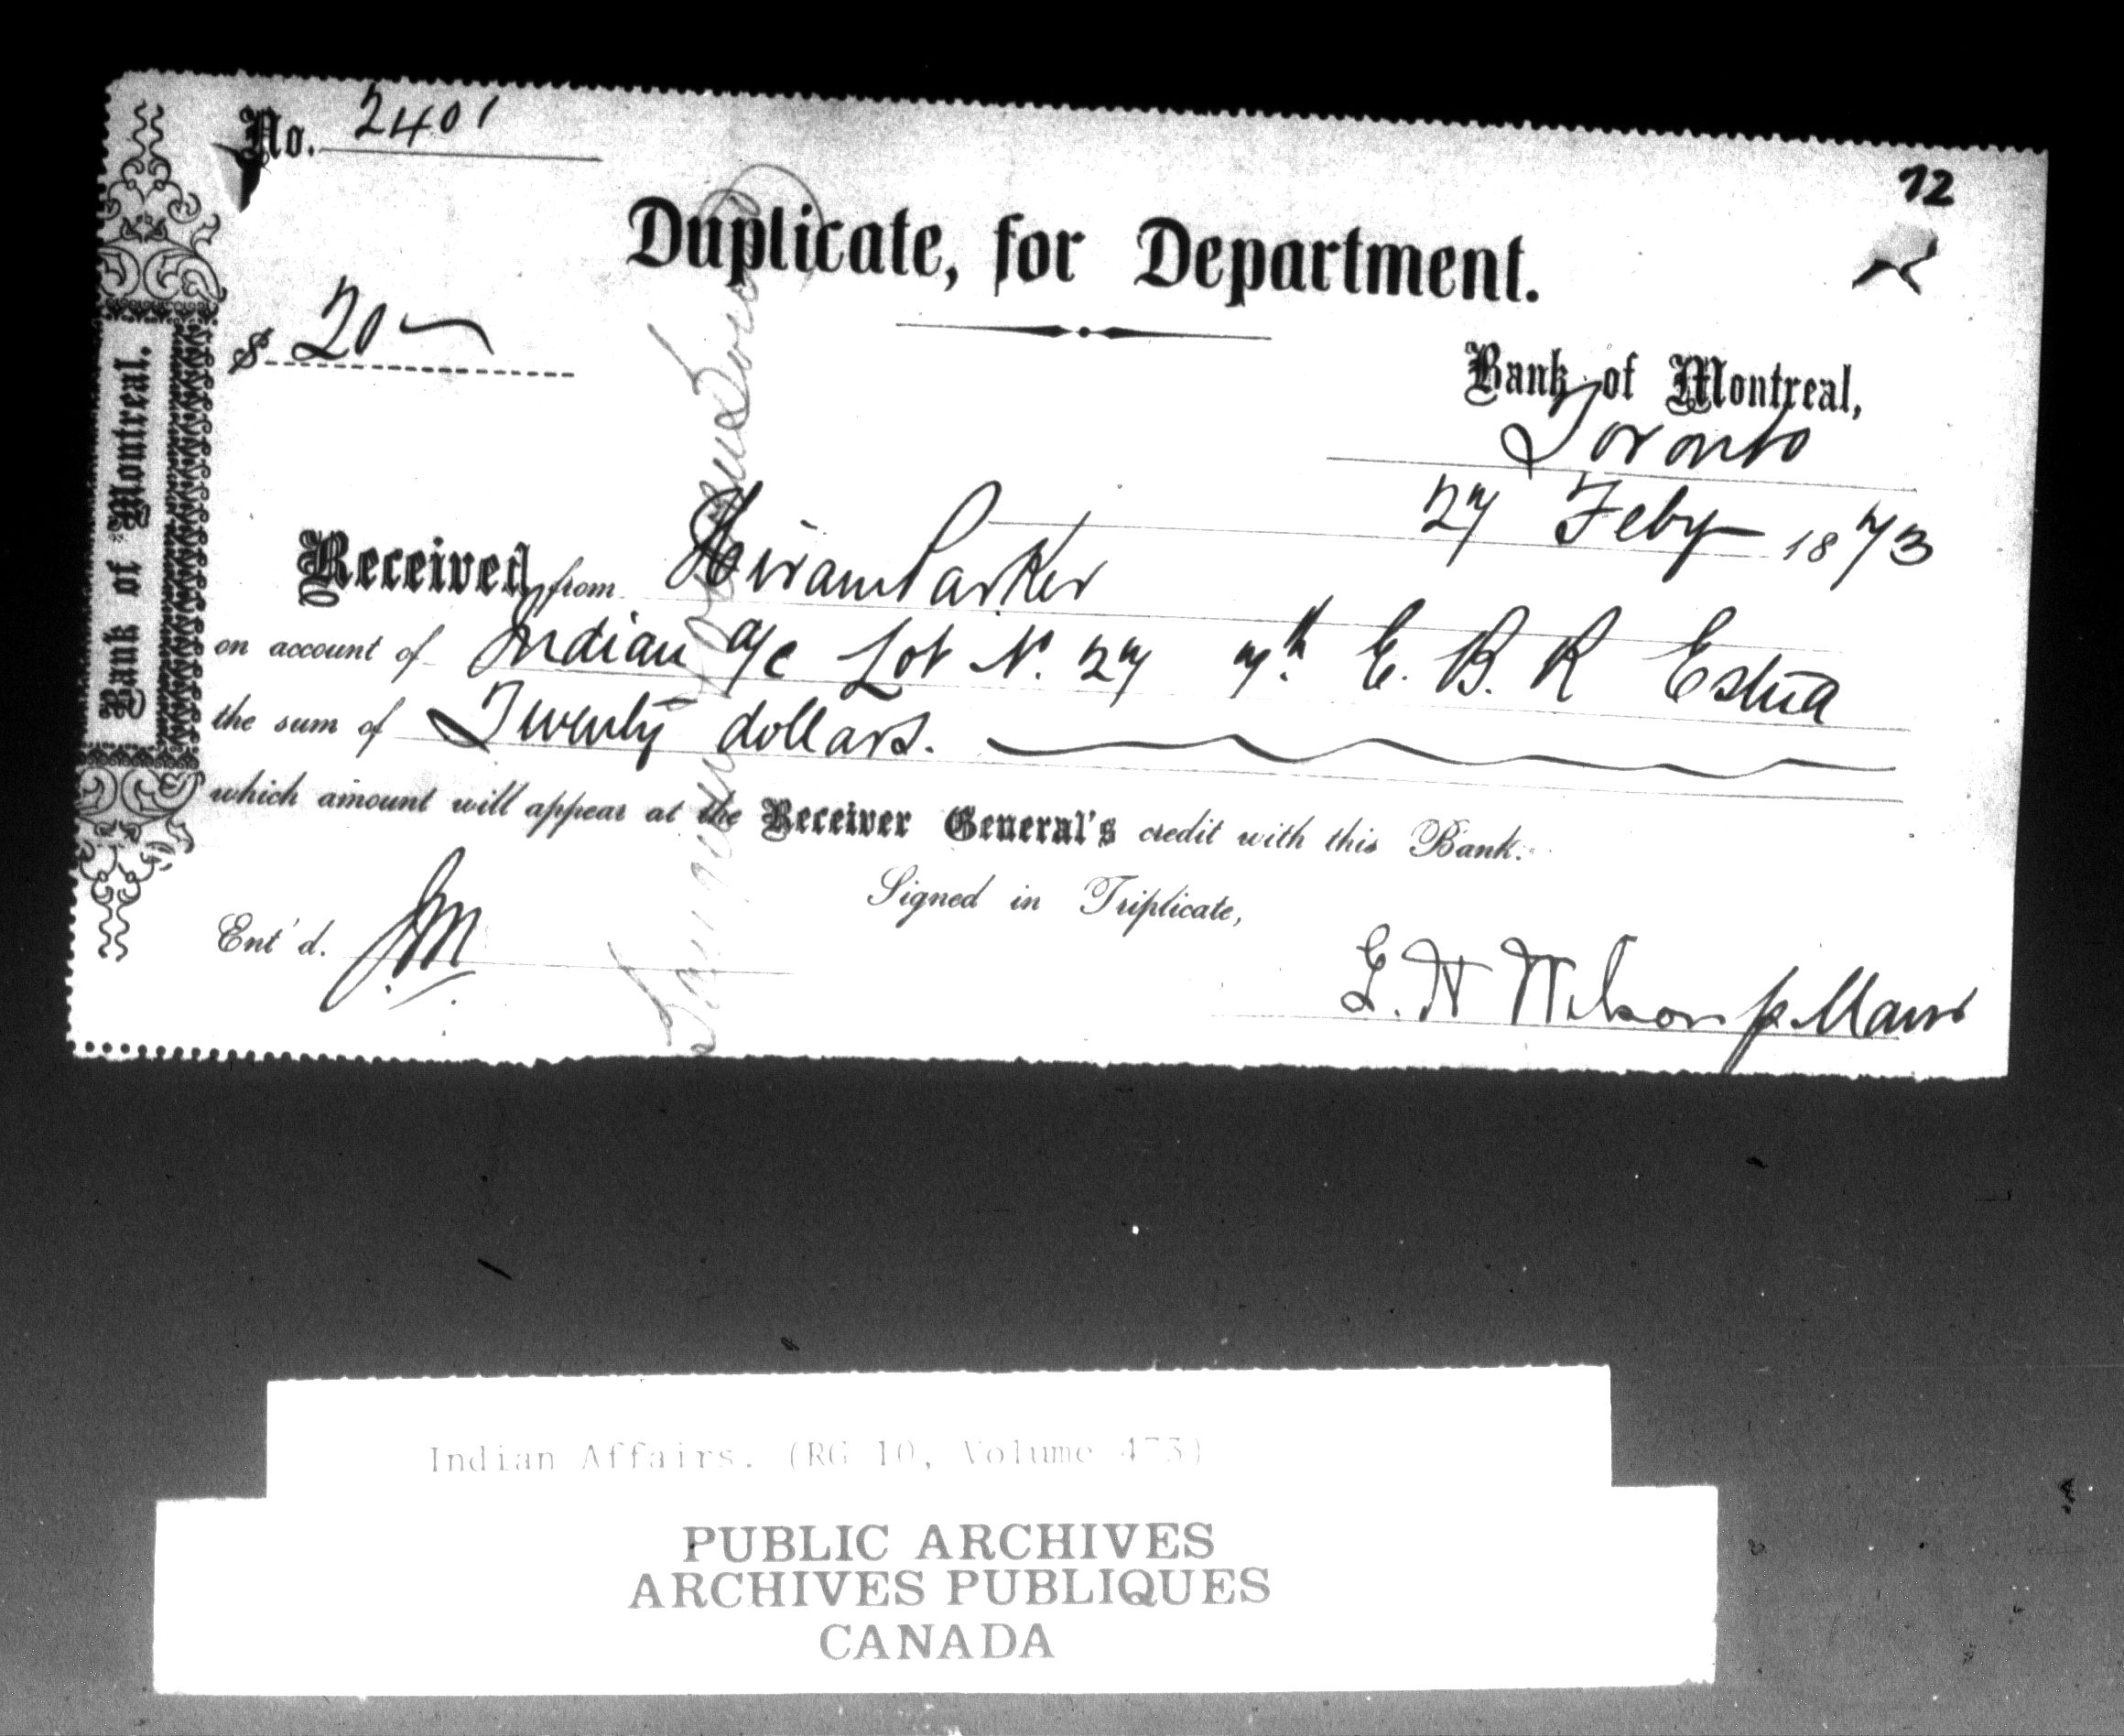 No. 2401
12
Duplicate, for Department.
$ 20
Bank of Montreal,
Toronto
27 Feby 1873
Received from Hiram Parker
on account of Indian a/c Lot N. 27 7th E. B. R
the sum of Twenty dollars.
which amount will appear at the Receiver General's credit with this Bank.
Signed in Triplicate,
Ent'd. JM
E. H Wilson p. Manr
Bank of Montreal.
Indian Affairs. (RG 10, Volume 473)
PUBLIC ARCHIVES
ARCHIVES PUBLIQUES
CANADA